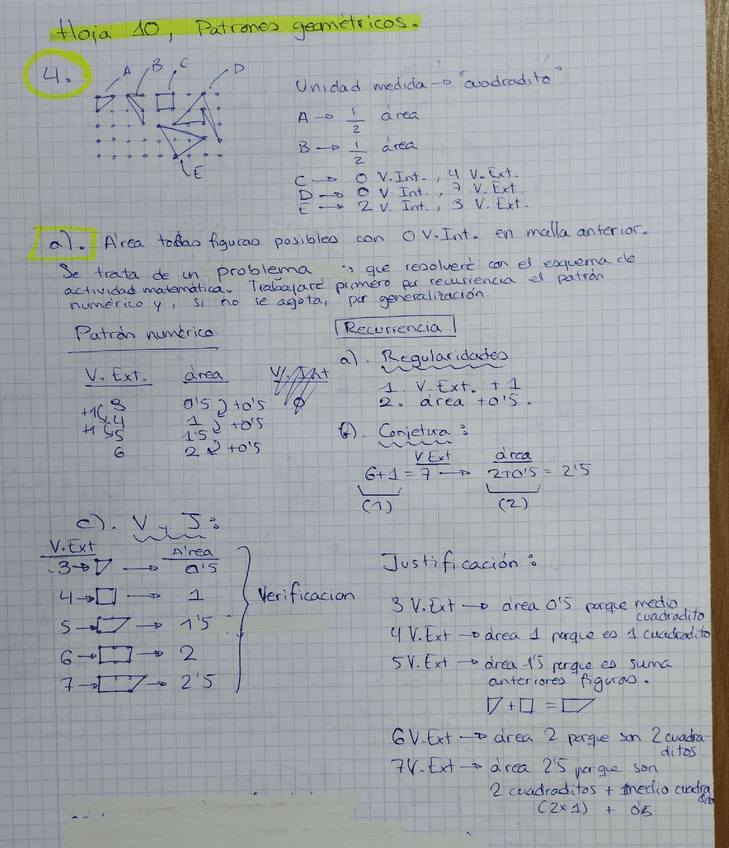 Hoja 10, Patrones geométricos.
4.
A B C D
E
Unidad medida → "cuadradito"
A → 1/2 área
B → 1/2 área
C → 0 V. Int., 4 V. Ext.
D → 0 V. Int., 7 V. Ext.
E → 2 V. Int., 3 V. Ext.
a). Área todas figuras posibles con 0 V. Int. en malla anterior.
Se trata de un problema que resolveré con el esquema de
actividad matemática. Trabajaré primero por recurrencia el patrón
numérico y, si no se agota, por generalización.
Patrón numérico
V. Ext. área
+1 3 0'5 +0'5
+1 4 1 +0'5
5 1'5 +0'5
6 2
Recurrencia
a). Regularidades
1. V. Ext. +1
2. área +0'5.
b). Conjetura:
V Ext área
6+1 = 7 → 2+0'5 = 2'5
(1) (2)
c). V y J:
V. Ext Área
3 → → 0'5
4 → → 1
5 → → 1'5
6 → → 2
7 → → 2'5
Verificacion
Justificación:
3 V. Ext → área 0'5 porque medio
cuadradito
4 V. Ext → área 1 porque es 1 cuadradito
5 V. Ext → área 1'5 porque es suma
anteriores figuras.
+ =
6 V. Ext → área 2 porque son 2 cuadra-
ditos
7 V. Ext → área 2'5 porque son
2 cuadraditos + medio cuadradito
(2x1) + 0'5